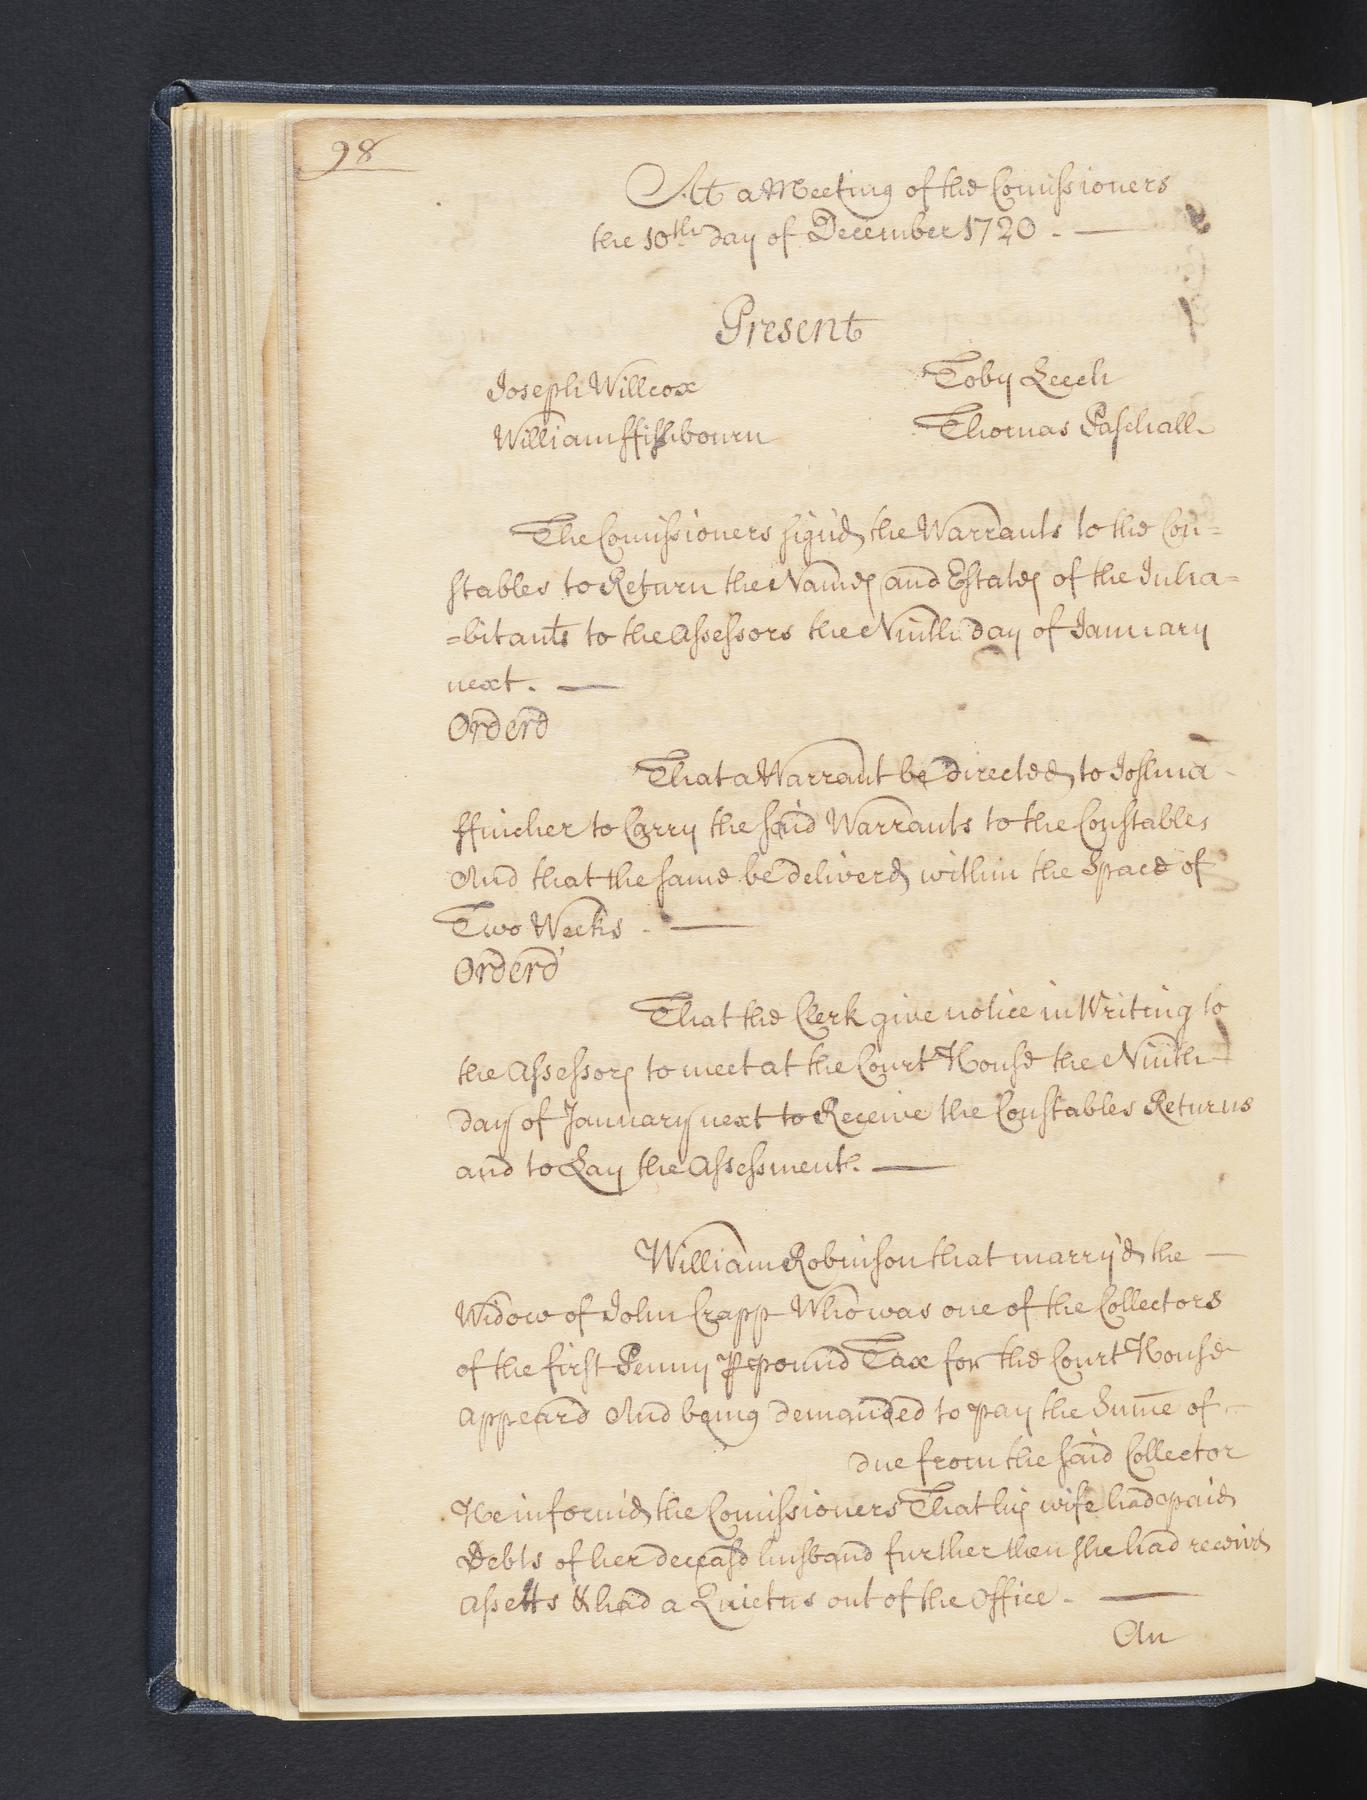 98
At a Meeting of the Comissioners
the 10th day of December 1720. —
Present
Joseph Willcox
Toby Leech
William ffishbourn
Thomas Paschall
The Comissioners sign'd the Warrants to the Con=
stables to Return the Names and Estates of the Inha=
=bitants to the Assessors the Ninth day of January
next. —
Orderd
That a Warrant be directed to Joshua
ffincher to Carry the said Warrants to the Constables
And that the same be deliverd within the Space of
Two Weeks. —
Orderd
That the Clerk give notice in Writing to
the Assessors to meet at the Court House the Ninth
day of January next to Receive the Constables Returns
and to Lay the Assessment. —
William Robinson that marry'd the —
Widow of John Crapp Who was one of the Collectors
of the first Penny ⅌ pound Tax for the Court House
appeard And being demanded to pay the Sum̄e of —
due from the said Collector
He inform'd the Comissioners That his wife had paid
Debts of her deceasd husband further then she had receivd
assetts & had a Quietus out of the Office. —
An